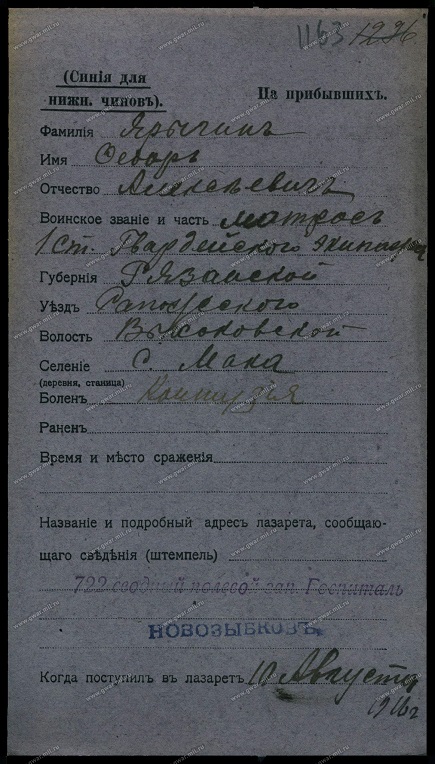 1163 1226
(Синія для
нижн. чиновъ).
На прибывшихъ.
Фамилія Ярычинъ
Имя Ѳедоръ
Отчество Алексѣевичъ
Воинское званіе и часть матросъ
1 ст. Гвардейского Экипажа
Губернія Рязанской
Уѣздъ Сапожковского
Волость
Селеніе с. Мака
(деревня, станица)
Боленъ Контузія
Раненъ
Время и мѣсто сраженія
Названіе и подробный адресъ лазарета, сообщаю-
щаго свѣдѣнія (штемпель)
722 сводный полевой зап. Госпиталь
НОВОЗЫБКОВЪ.
Когда поступилъ въ лазаретъ 10 Августа
1916 г